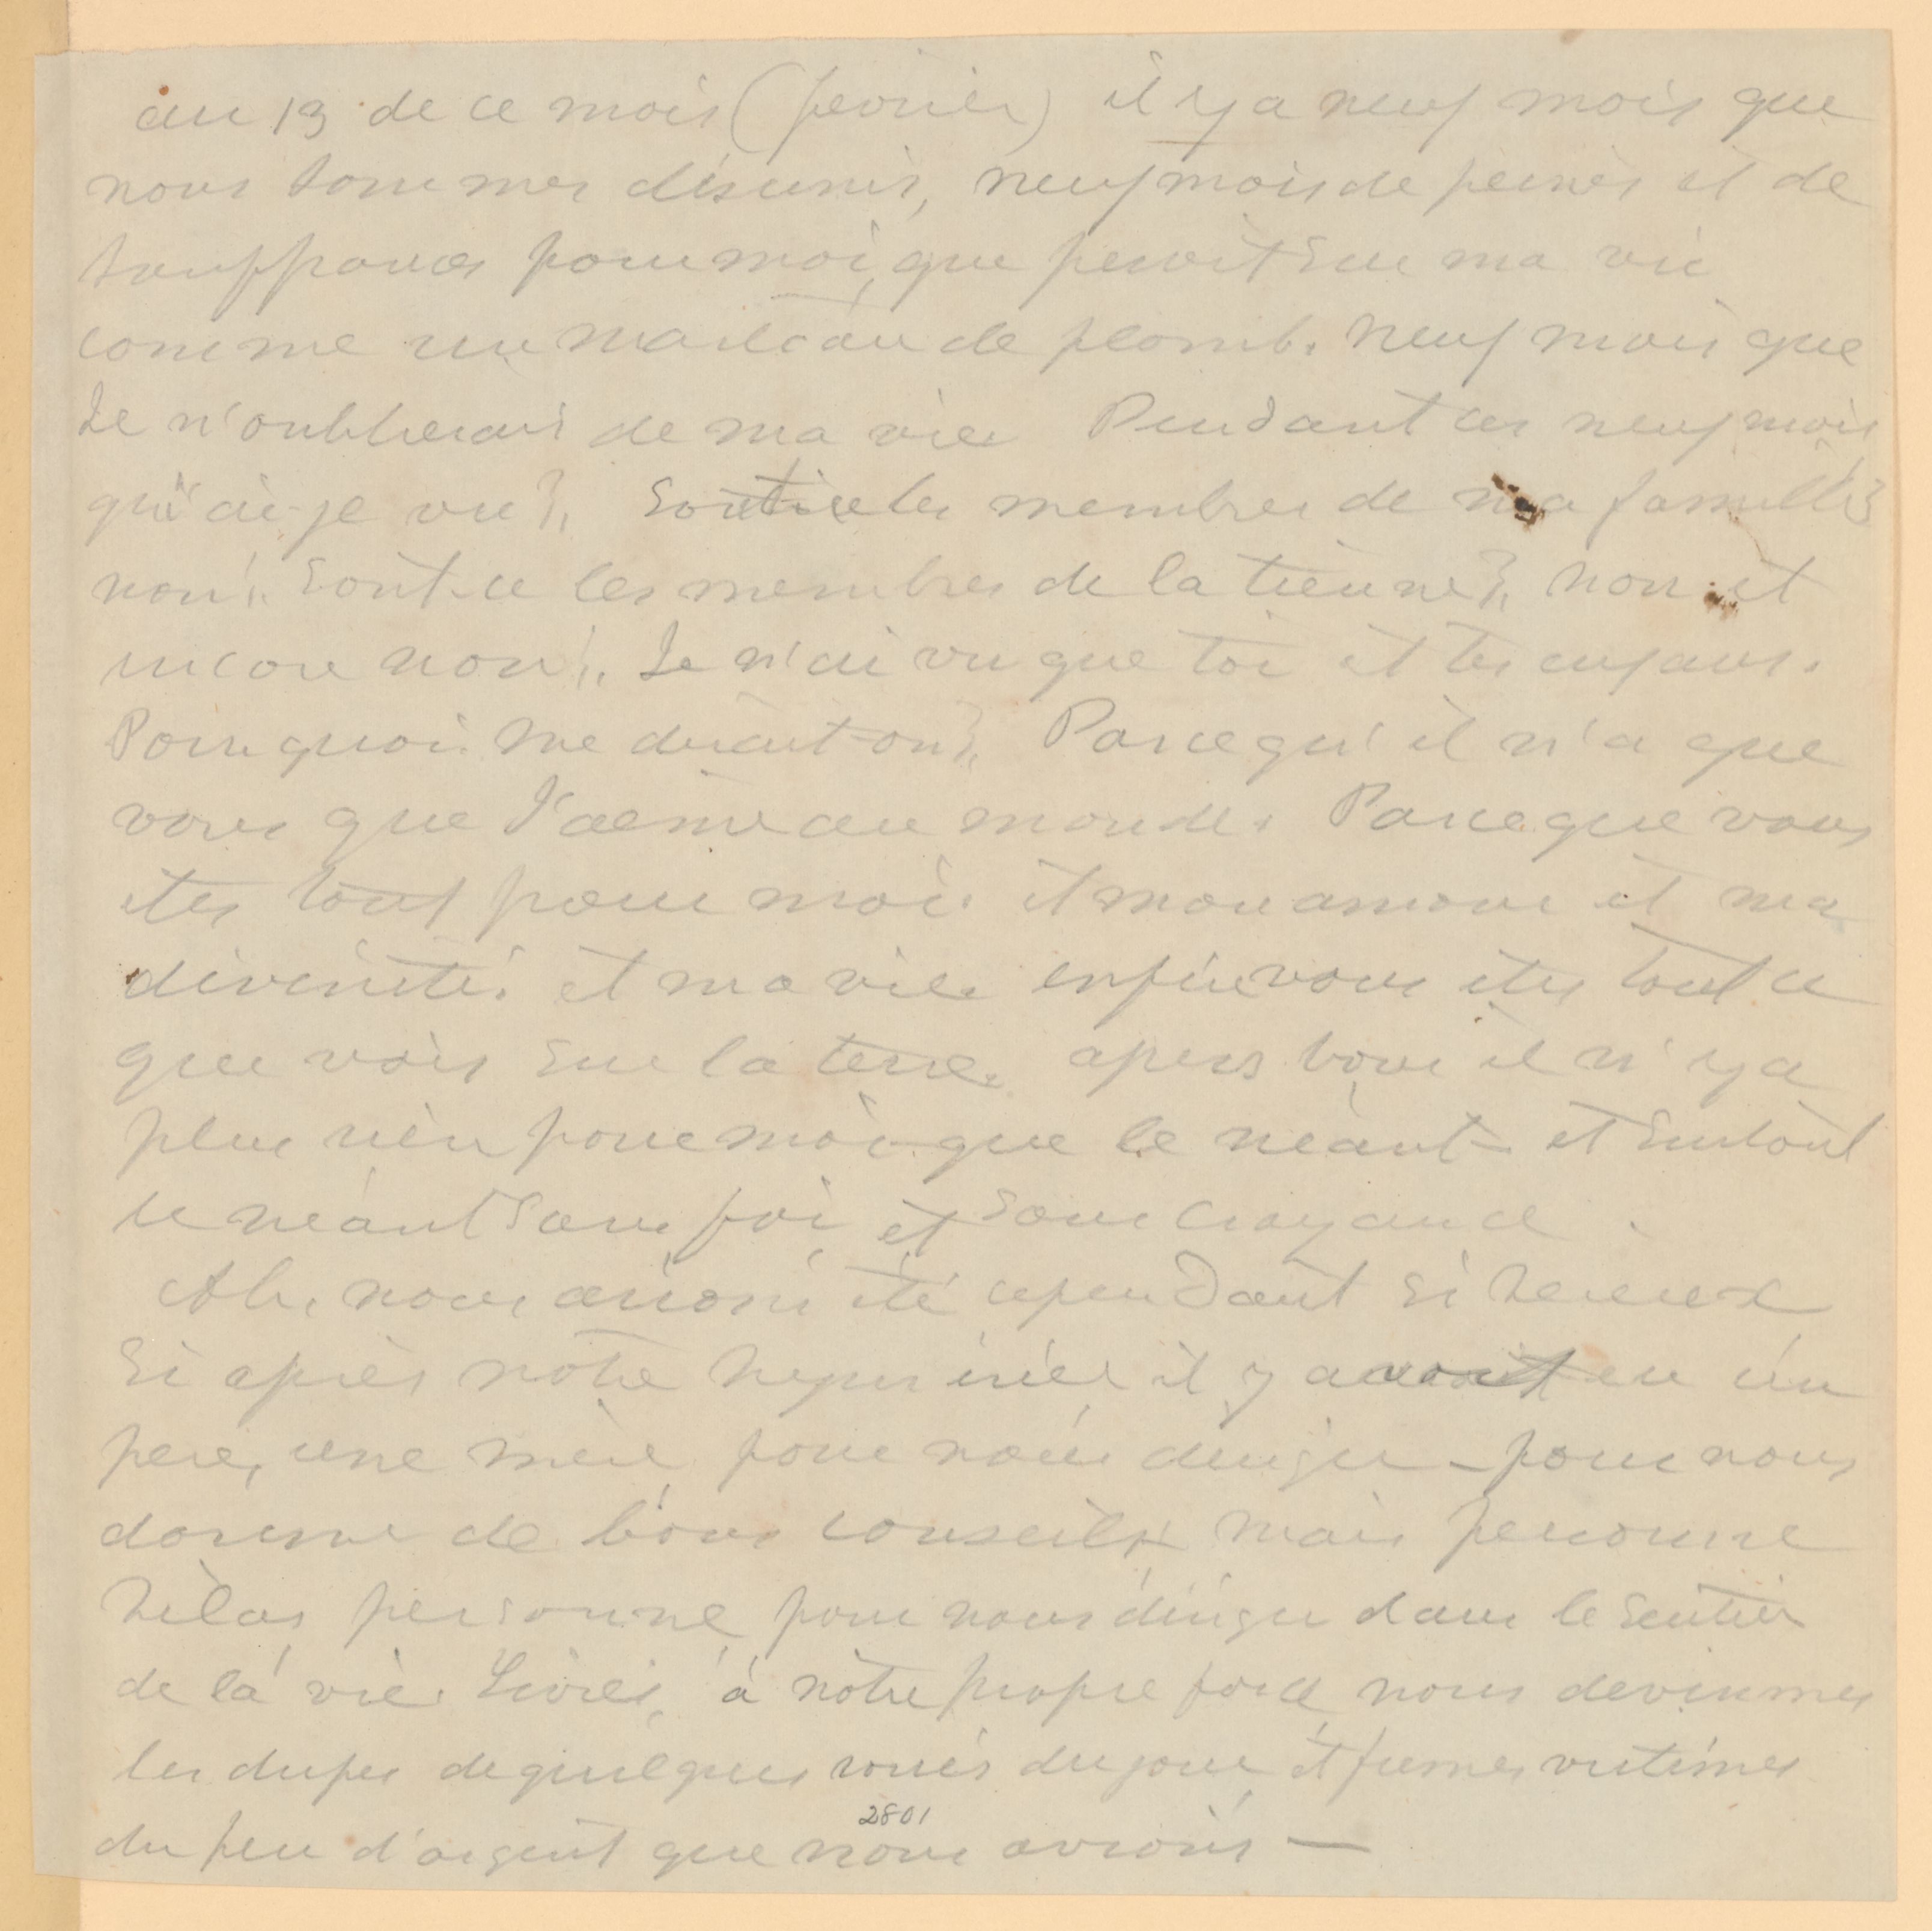 au 13 de ce mois (fevrier) il y a neuf mois que
nous sommes désunis, neuf mois de peines et de
souffrances pour moi, que pesoit sur ma vie
comme un manteau de plomb. neuf mois que
Je n'oublierais de ma vie Pendant ces neuf mois
qu'ai-je vu?, Sont ce les membres de ma famille?
non!. Sont-ce les membres de la tienne?, non et
encore non!. Je n'ai vu que toi et tes enfans.
Pourquoi me dirait-on?, Parcequ'il n'a que
vous que J'aime au monde. Parceque vous
etes tout pour moi. et mon amour et ma
divinité. et ma vie. enfin vous etes tout ce
que vois sur la terre. apers vous il n'y a
plus rien pour moi que le néant - et surtout
le néant Sans foi et sans croyance .
Ah. nous aurions été cependant si hereux
Si après notre il y avait eu un
pere, une mère pour nous diriger - pour nous
donner de bons conseils mais personne
hélas personne pour nous diriger dans le sentier
de la vie. Livrés, à notre propre force nous devinmes
les dupes de quelques roués du jour et fumes victimes
du peu d'argent que nous avions —
2801